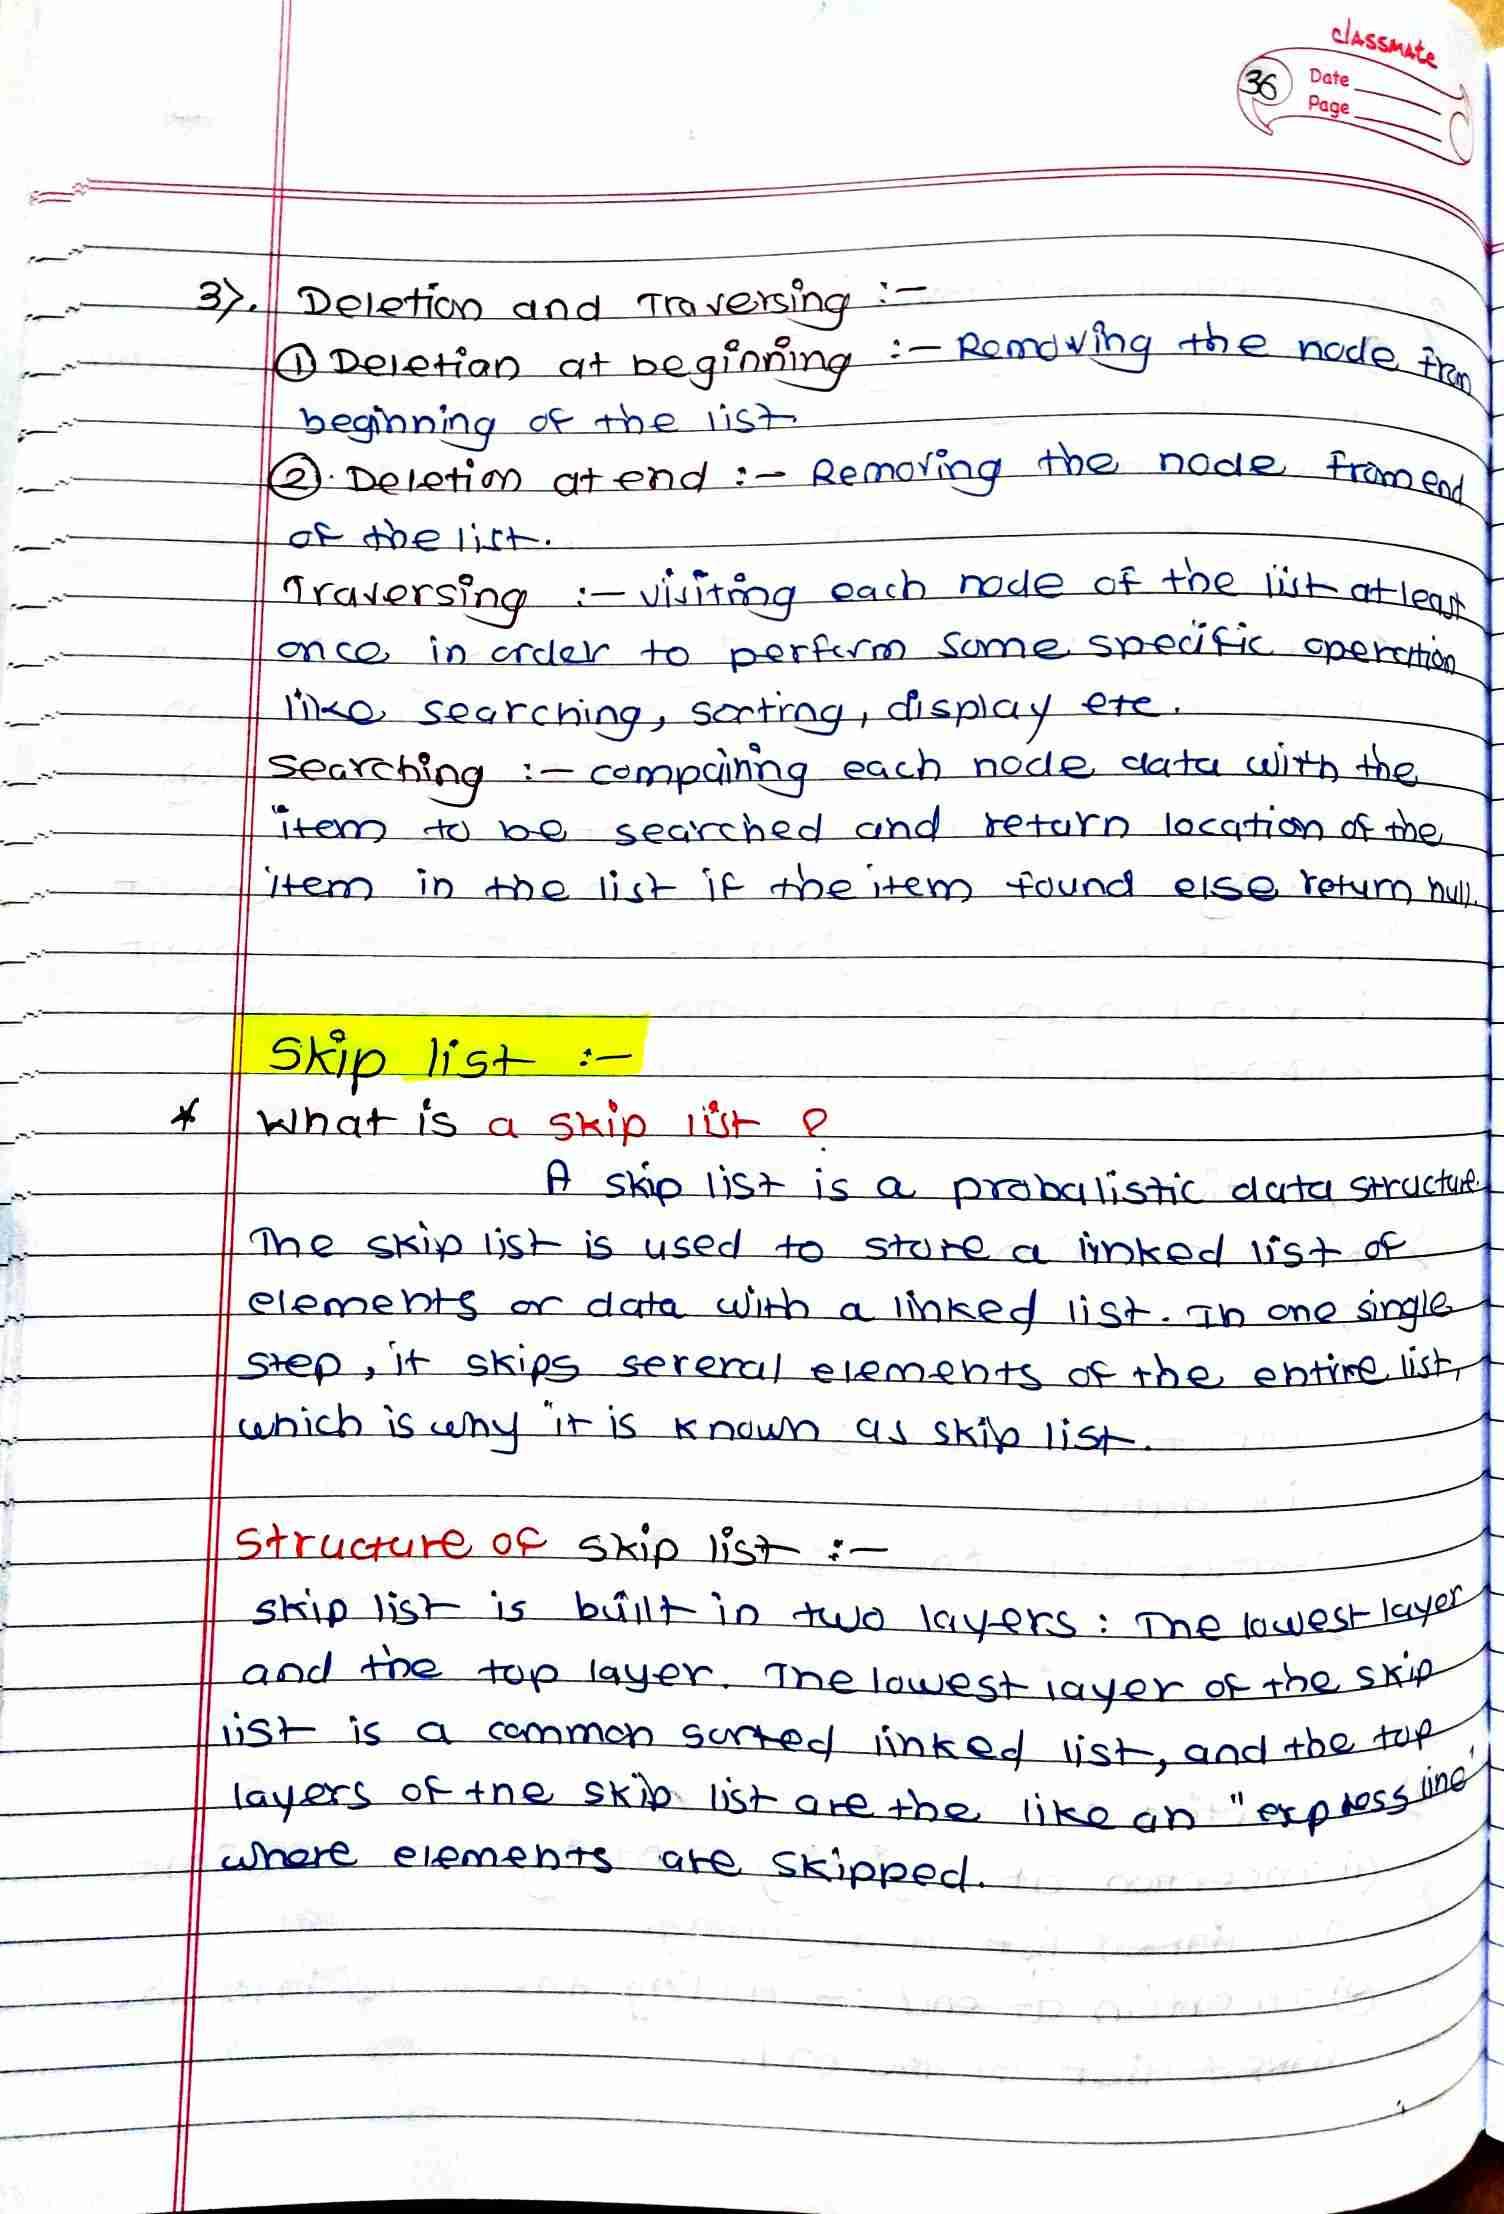 classmate
36
Date
Page
3>. Deletion and Traversing :-
① Deletion at beginning :- Removing the node from
beginning of the list.
②. Deletion at end :- Removing the node from end
of the list.
Traversing :- visiting each node of the list at least
once in order to perform some specific operation
like searching, sorting, display etc.
Searching :- comparing each node data with the
item to be searched and return location of the
item in the list if the item found else return null.
Skip list :-
* What is a skip list ?
A skip list is a probalistic data structure.
The skip list is used to store a linked list of
elements or data with a linked list. In one single
step, it skips sereral elements of the entire list,
which is why it is known as skip list.
Structure of skip list :-
skip list is built in two layers : The lowest layer
and the top layer. The lowest layer of the skip
list is a common sorted linked list, and the top
layers of the skip list are the like an "express line"
where elements are skipped.